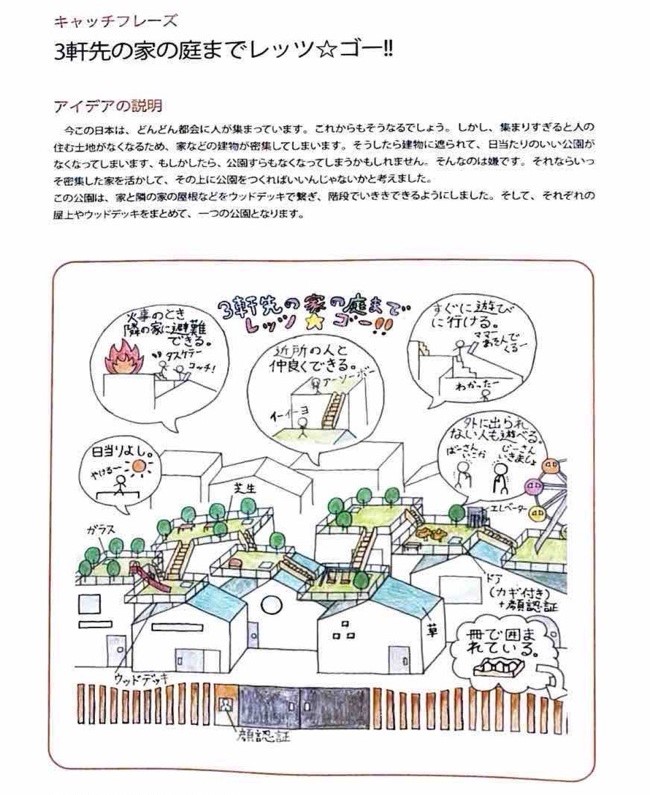 キャッチフレーズ
3軒先の家の庭までレッツ☆ゴー!!
アイデアの説明
今この日本は、どんどん都会に人が集まっています。これからもそうなるでしょう。しかし、集まりすぎると人の
住む土地がなくなるため、家などの建物が密集してしまいます。そうしたら建物に遮られて、日当たりのいい公園が
なくなってしまいます、もしかしたら、公園すらもなくなってしまうかもしれません。そんなのは嫌です。それならいっ
そ密集した家を活かして、その上に公園をつくればいいんじゃないかと考えました。
この公園は、家と隣の家の屋根などをウッドデッキで繋ぎ、階段でいききできるようにしました。そして、それぞれの
屋上やウッドデッキをまとめて、一つの公園となります。
3軒先の家の庭まで
レッツ☆ゴー!!
火事のとき
隣の家に避難
できる。
タスケテー
コッチ!
近所の人と
仲良くできる。
アーソーボー
イーイーヨ
すぐに遊び
に行ける。
ママー
あそんで
くるー
わかったー
日当りよし。
やけるー
外に出られ
ない人も遊べる。
ばーさん
いこか
じーさん
いきましょ
芝生
ガラス
エレベーター
ドア
(カギ付き)
+顔認証
草
冊で囲ま
れている。
ウッドデッキ
顔認証